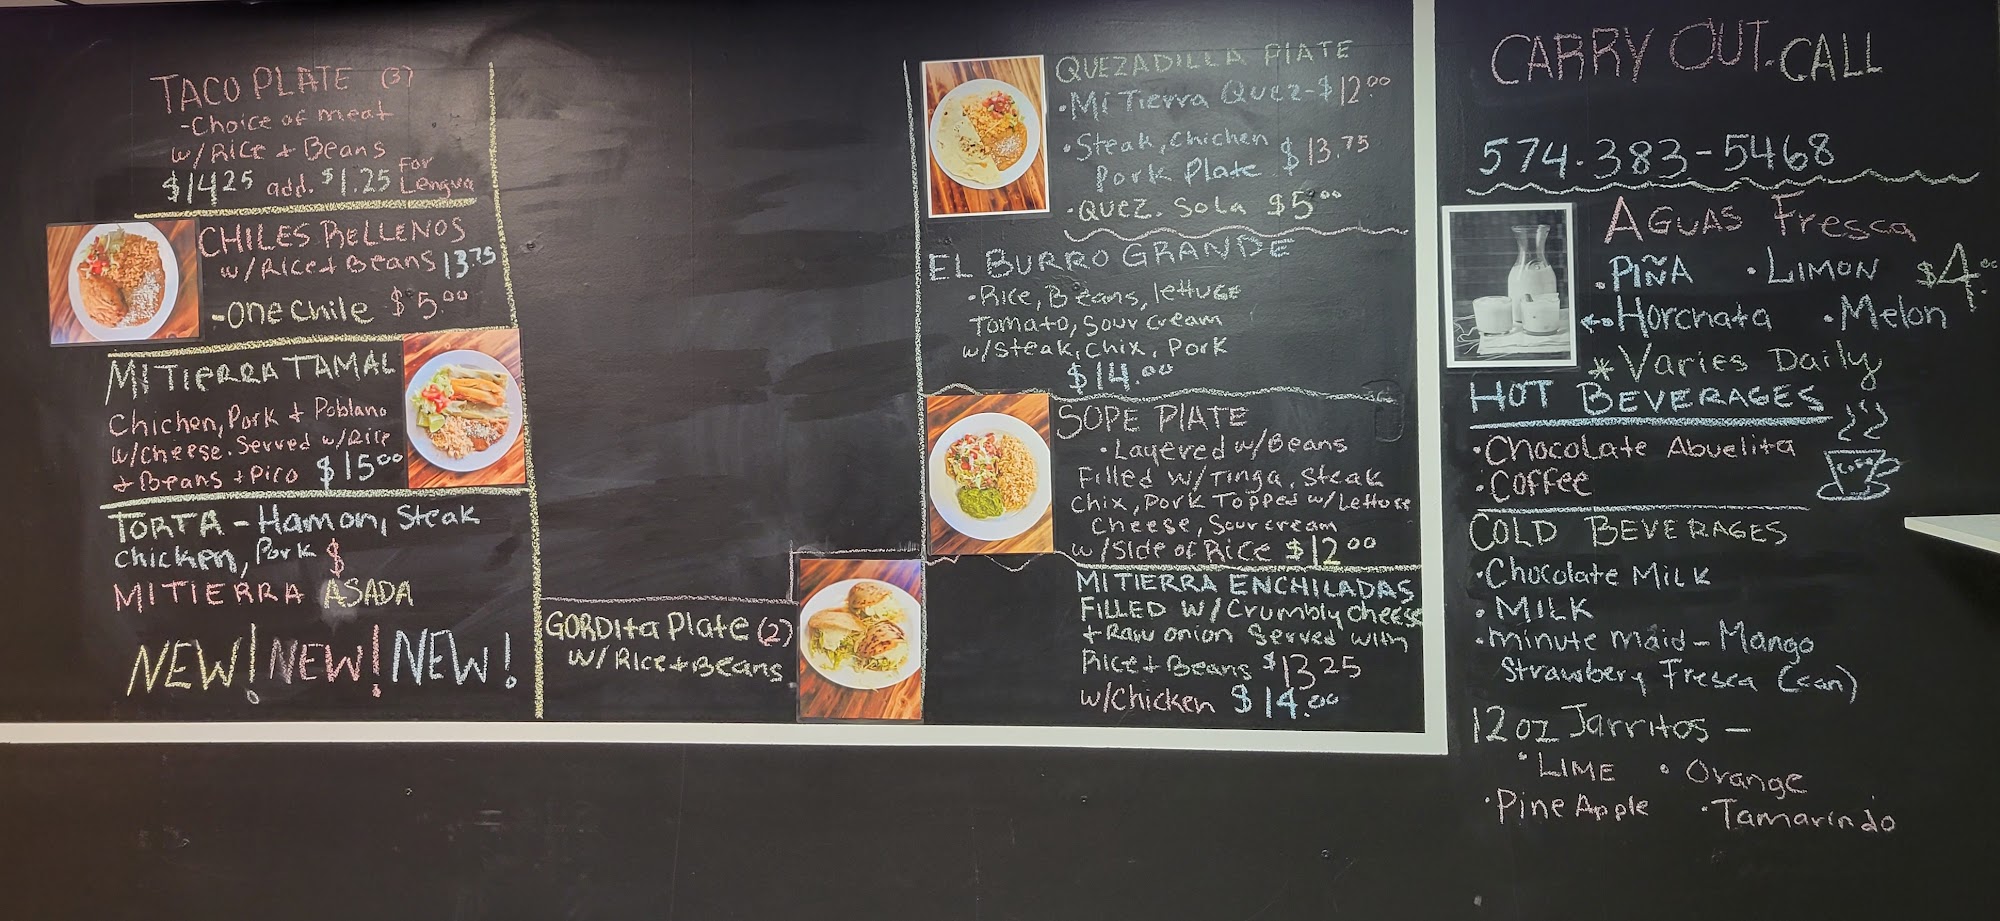 TACO PLATE (3)
-Choice of meat
w/RICE + Beans
$14.25 add. $1.25 For Lengua
CHILES RELLENOS
w/Rice + Beans 13.75
-One Chile $5.00
MI TIERRA TAMAL
Chicken, Pork + Poblano
w/Cheese. Served w/Rice
+ Beans + Pico $15.00
TORTA - Hamon, Steak
Chicken, Pork $
MI TIERRA ASADA
NEW! NEW! NEW!
GORDITA PLATE (2)
w/ RICE + Beans
QUEZADILLA PLATE
•Mi Tierra Quez-$12.00
•Steak, Chicken
Pork Plate $13.75
•Quez. Sola $5.00
EL BURRO GRANDE
•Rice, Beans, lettuce
Tomato, Sour Cream
w/steak, Chix, Pork
$14.00
SOPE PLATE
•Layered w/Beans
Filled w/Tinga, Steak
Chix, Pork Topped w/Lettuse
Cheese, Sour cream
w/Side of Rice $12.00
MI TIERRA ENCHILADAS
FILLED W/ Crumbly Cheese
+ Raw onion Served with
Rice + Beans $13.25
w/Chicken $14.00
CARRY OUT. CALL
574-383-5468
AGUAS Fresca
•PIÑA •LIMON $4.00
•Horchata •Melon
*Varies Daily
HOT BEVERAGES
•Chocolate Abuelita
•Coffee
COLD BEVERAGES
•Chocolate MILK
•MILK
•minute maid - Mango
Strawbery Fresca (can)
12oz Jarritos -
•LIME •Orange
•Pine Apple •Tamarindo